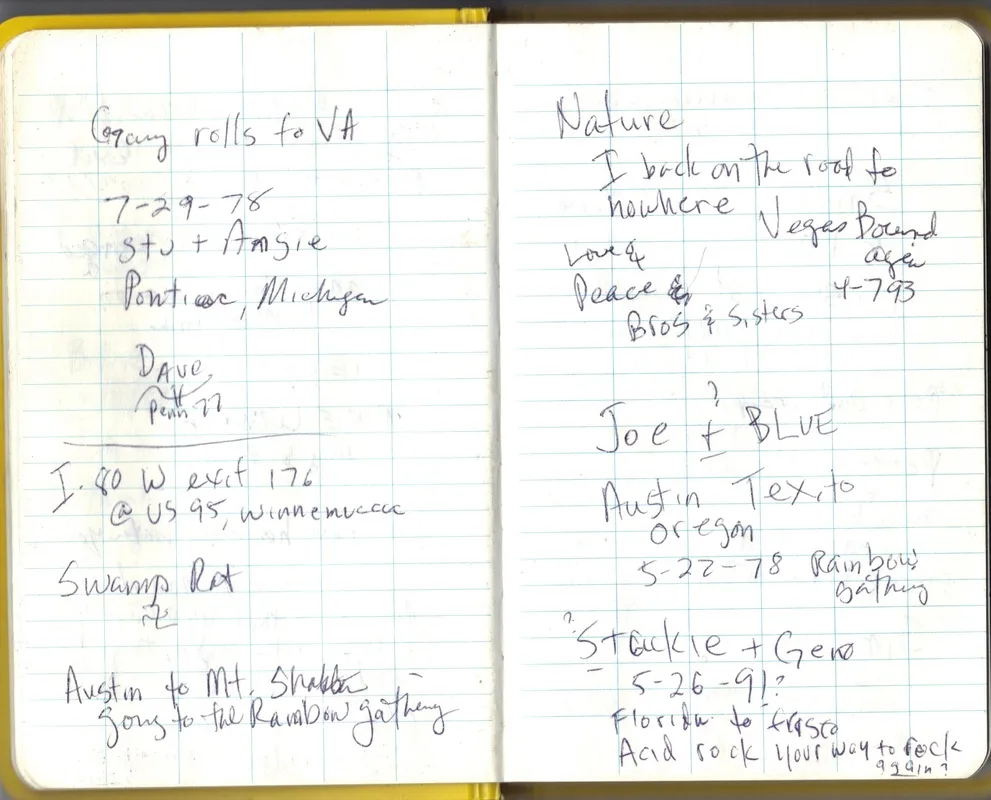 rolls to VA
7-29-78
Stu + Angie
Pontiac, Michigan
DAVE
Penn 77
I.80 W exit 176
@ US 95, Winnemucca
Swamp Rat
Austin to Mt. Shasta
gong to the Rainbow gathering
Nature
I back on the road to
nowhere
Vegas Bound
agin
4-793
Love &
Peace &
Bros & Sisters
?
Joe + BLUE
Austin Tex, to
Oregon
5-22-78 Rainbow
gathing
?
Stackie + Gero
5-26-91?
Florida to frisco
Acid rock your way to rock
again?